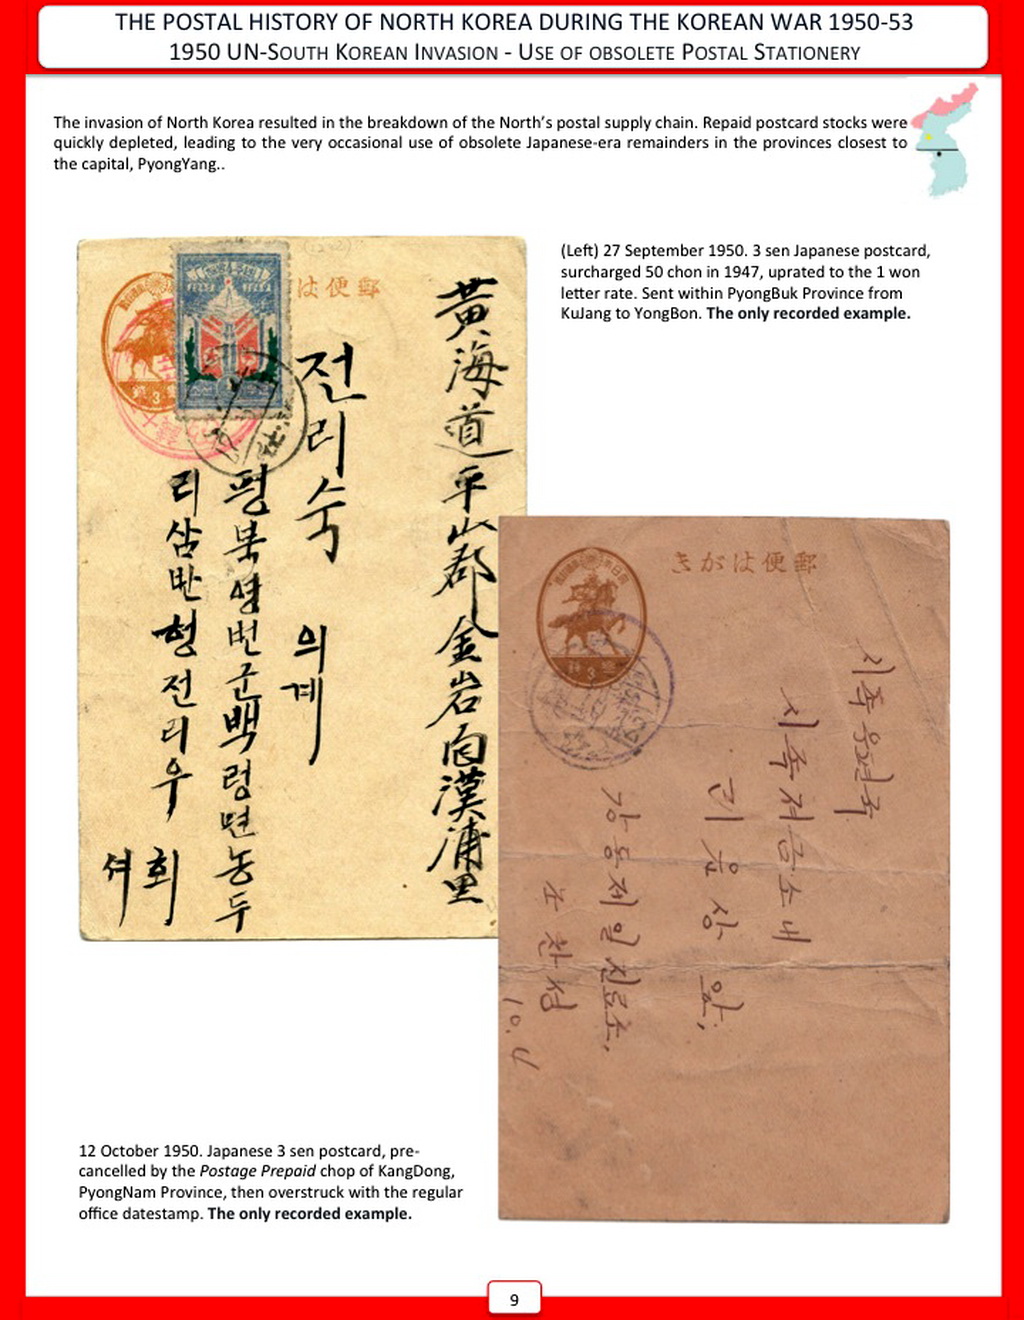 THE POSTAL HISTORY OF NORTH KOREA DURING THE KOREAN WAR 1950-53
1950 UN-SOUTH KOREAN INVASION - USE OF OBSOLETE POSTAL STATIONERY
The invasion of North Korea resulted in the breakdown of the North's postal supply chain. Repaid postcard stocks were
quickly depleted, leading to the very occasional use of obsolete Japanese-era remainders in the provinces closest to
the capital, PyongYang..
(Left) 27 September 1950. 3 sen Japanese postcard,
surcharged 50 chon in 1947, uprated to the 1 won
letter rate. Sent within PyongBuk Province from
KuJang to YongBon. The only recorded example.
は便郵
黃海道平山郡金岩面漢浦里
전리숙 의계
평북영변군백령면농두
리삼반형전리우
회
셔
きがは便郵
3
시족우편국
시족저금소내
리윤상 앞
강동제일진료소
조찬성
10.4
12 October 1950. Japanese 3 sen postcard, pre-
cancelled by the Postage Prepaid chop of KangDong,
PyongNam Province, then overstruck with the regular
office datestamp. The only recorded example.
9